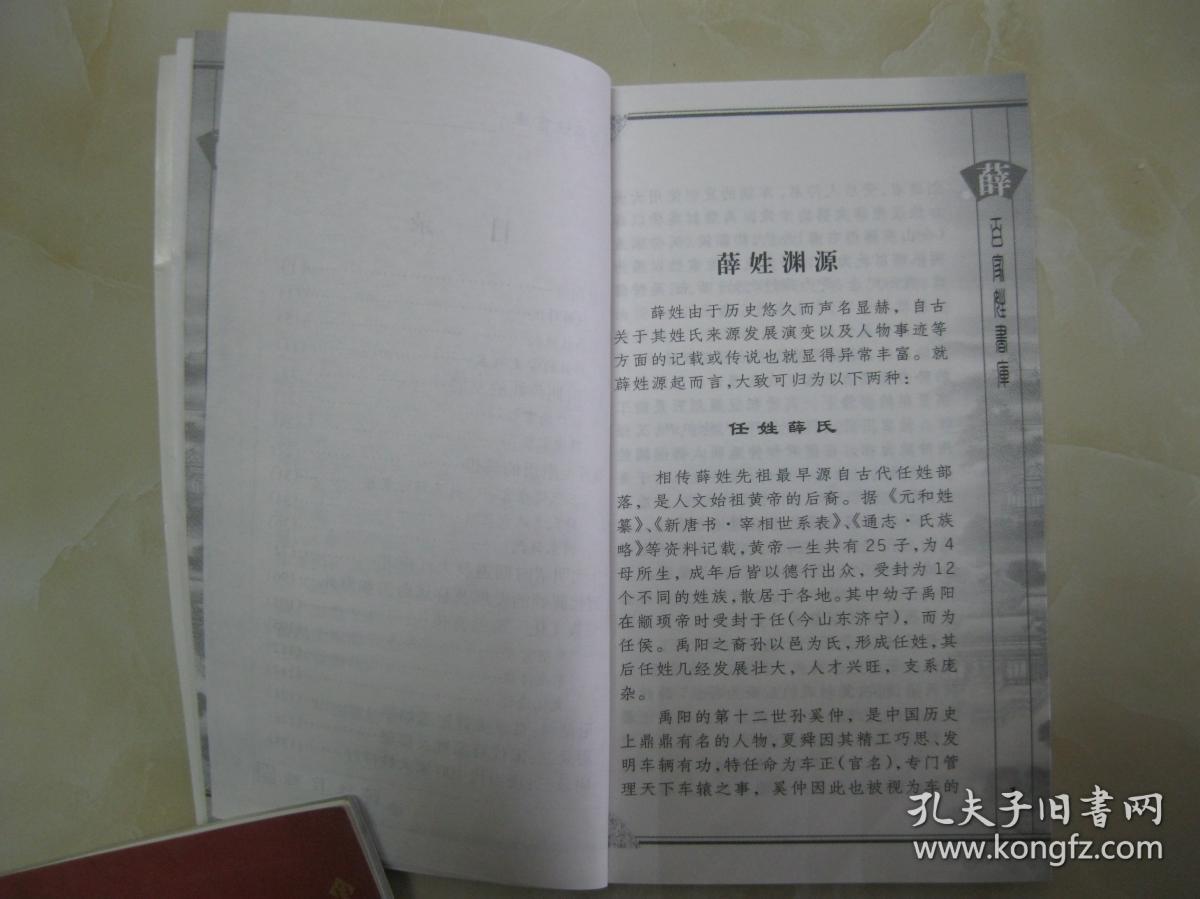 薛
百家姓書庫
薛姓渊源
薛姓由于历史悠久而声名显赫，自古
关于其姓氏来源发展演变以及人物事迹等
方面的记载或传说也就显得异常丰富。就
薛姓源起而言，大致可归为以下两种：
任姓薛氏
相传薛姓先祖最早源自古代任姓部
落，是人文始祖黄帝的后裔。据《元和姓
纂》、《新唐书·宰相世系表》、《通志·氏族
略》等资料记载，黄帝一生共有25子，为4
母所生，成年后皆以德行出众，受封为12
个不同的姓族，散居于各地。其中幼子禹阳
在颛顼帝时受封于任(今山东济宁)，而为
任侯。禹阳之裔孙以邑为氏，形成任姓，其
后任姓几经发展壮大，人才兴旺，支系庞
杂。
禹阳的第十二世孙奚仲，是中国历史
上鼎鼎有名的人物，夏舜因其精工巧思、发
明车辆有功，特任命为车正(官名)，专门管
理天下车辕之事，奚仲因此也被视为车的
孔夫子旧书网
www.kongfz.com